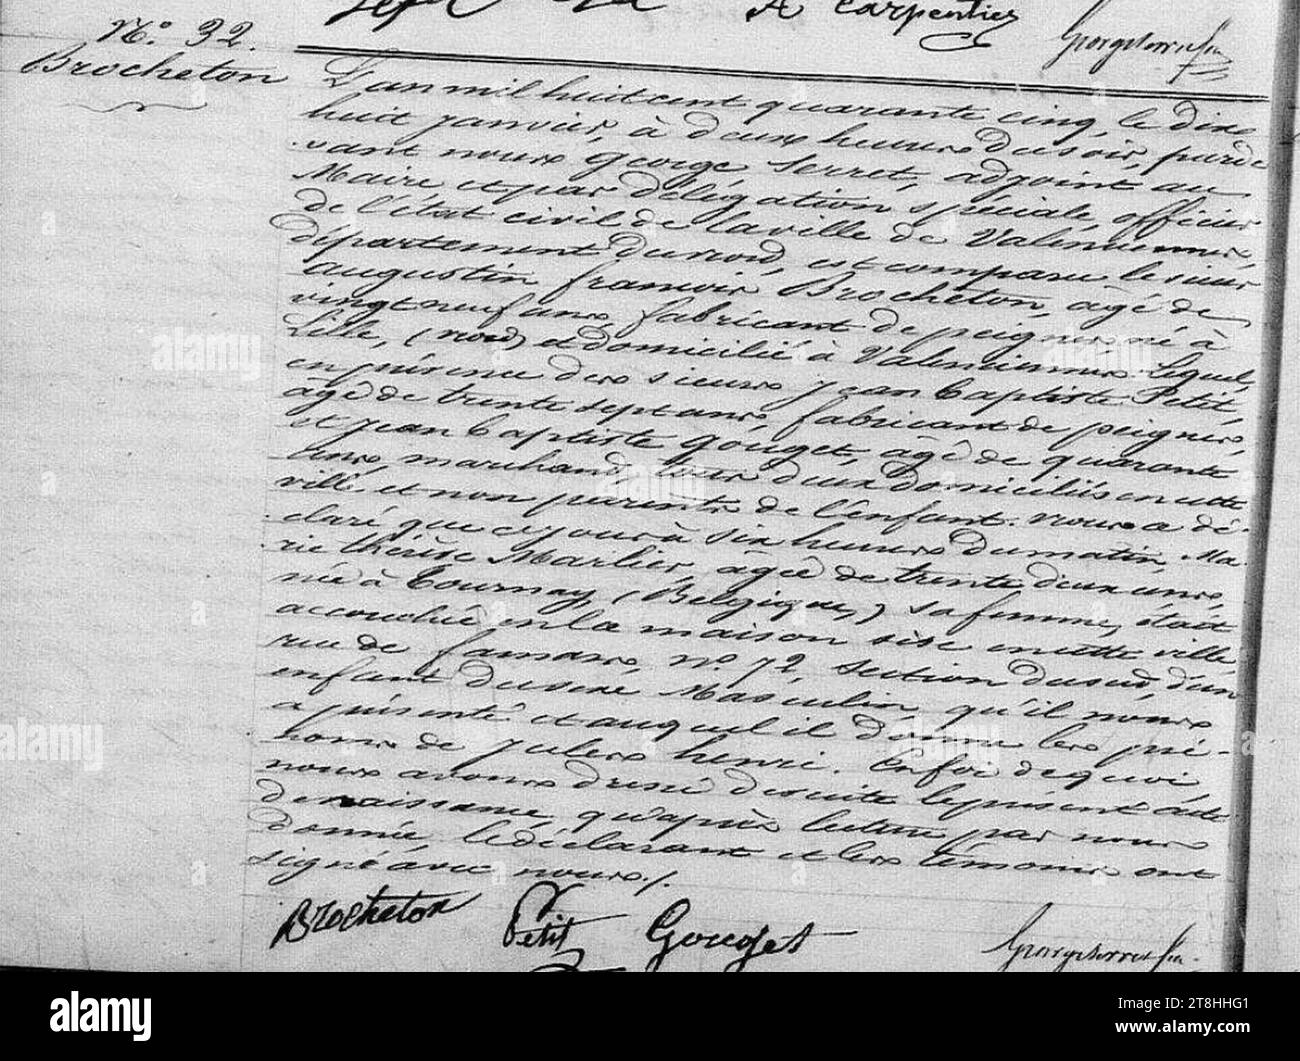 A Carpentier
George Serret fin
N.° 32.
Brocheton
L'an mil huit cent quarante cinq, le dix
huit janvier, à deux heures du soir, parde
vant nous George Serret, adjoint au
Maire et par délégation spéciale, officier
de l'état civil de la ville de Valenciennes,
département du nord, est comparu le sieur
augustin françois Brocheton, âgé de
vingt neuf ans, fabricant de peignes, né à
Lille, (nord) et domicilié à Valenciennes. Lequel,
en présence des sieurs jean baptiste Petit
âgé de trente sept ans, fabricant de peignes,
et jean baptiste Gouget, âgé de quarante
ans, marchand, tous deux domiciliés en cette
ville et non parents de l'enfant. nous a dé-
claré que ce jour à six heures du matin, Ma-
rie thérèse Marlier, âgée de trente deux ans,
née à Tournay, (Belgique,) sa femme, était
accouchée en la maison sise en cette ville,
rue de famars, n.° 72, section du sud, d'un
enfant du sexe Masculin qu'il nous
a présenté et auquel il donne les pré-
noms de jules henri. En foi de quoi,
nous avons dressé de suite le présent acte
de naissance, qu'après lecture par nous
donnée, le déclarant et les témoins ont
signé avec nous./.
Brocheton Petit Gouget George Serret fin
alamy
Image ID: 2T8HHG1
www.alamy.com